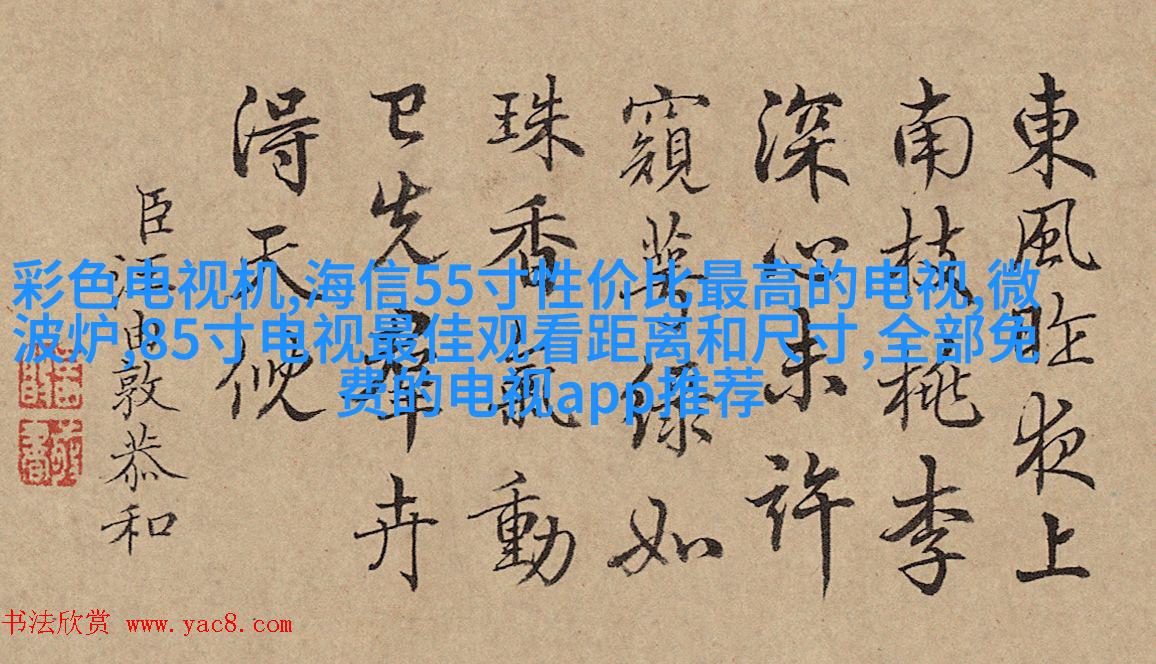 東風昨夜上
南枝桃李
深心未許
窺萼緑如
珠香氣動
已先羣卉
得天倪
臣汪由敦恭和
彩色电视机,海信55寸性价比最高的电视,微
波炉,85寸电视最佳观看距离和尺寸,全部免
费的电视app推荐
书法欣赏 www.yac8.com